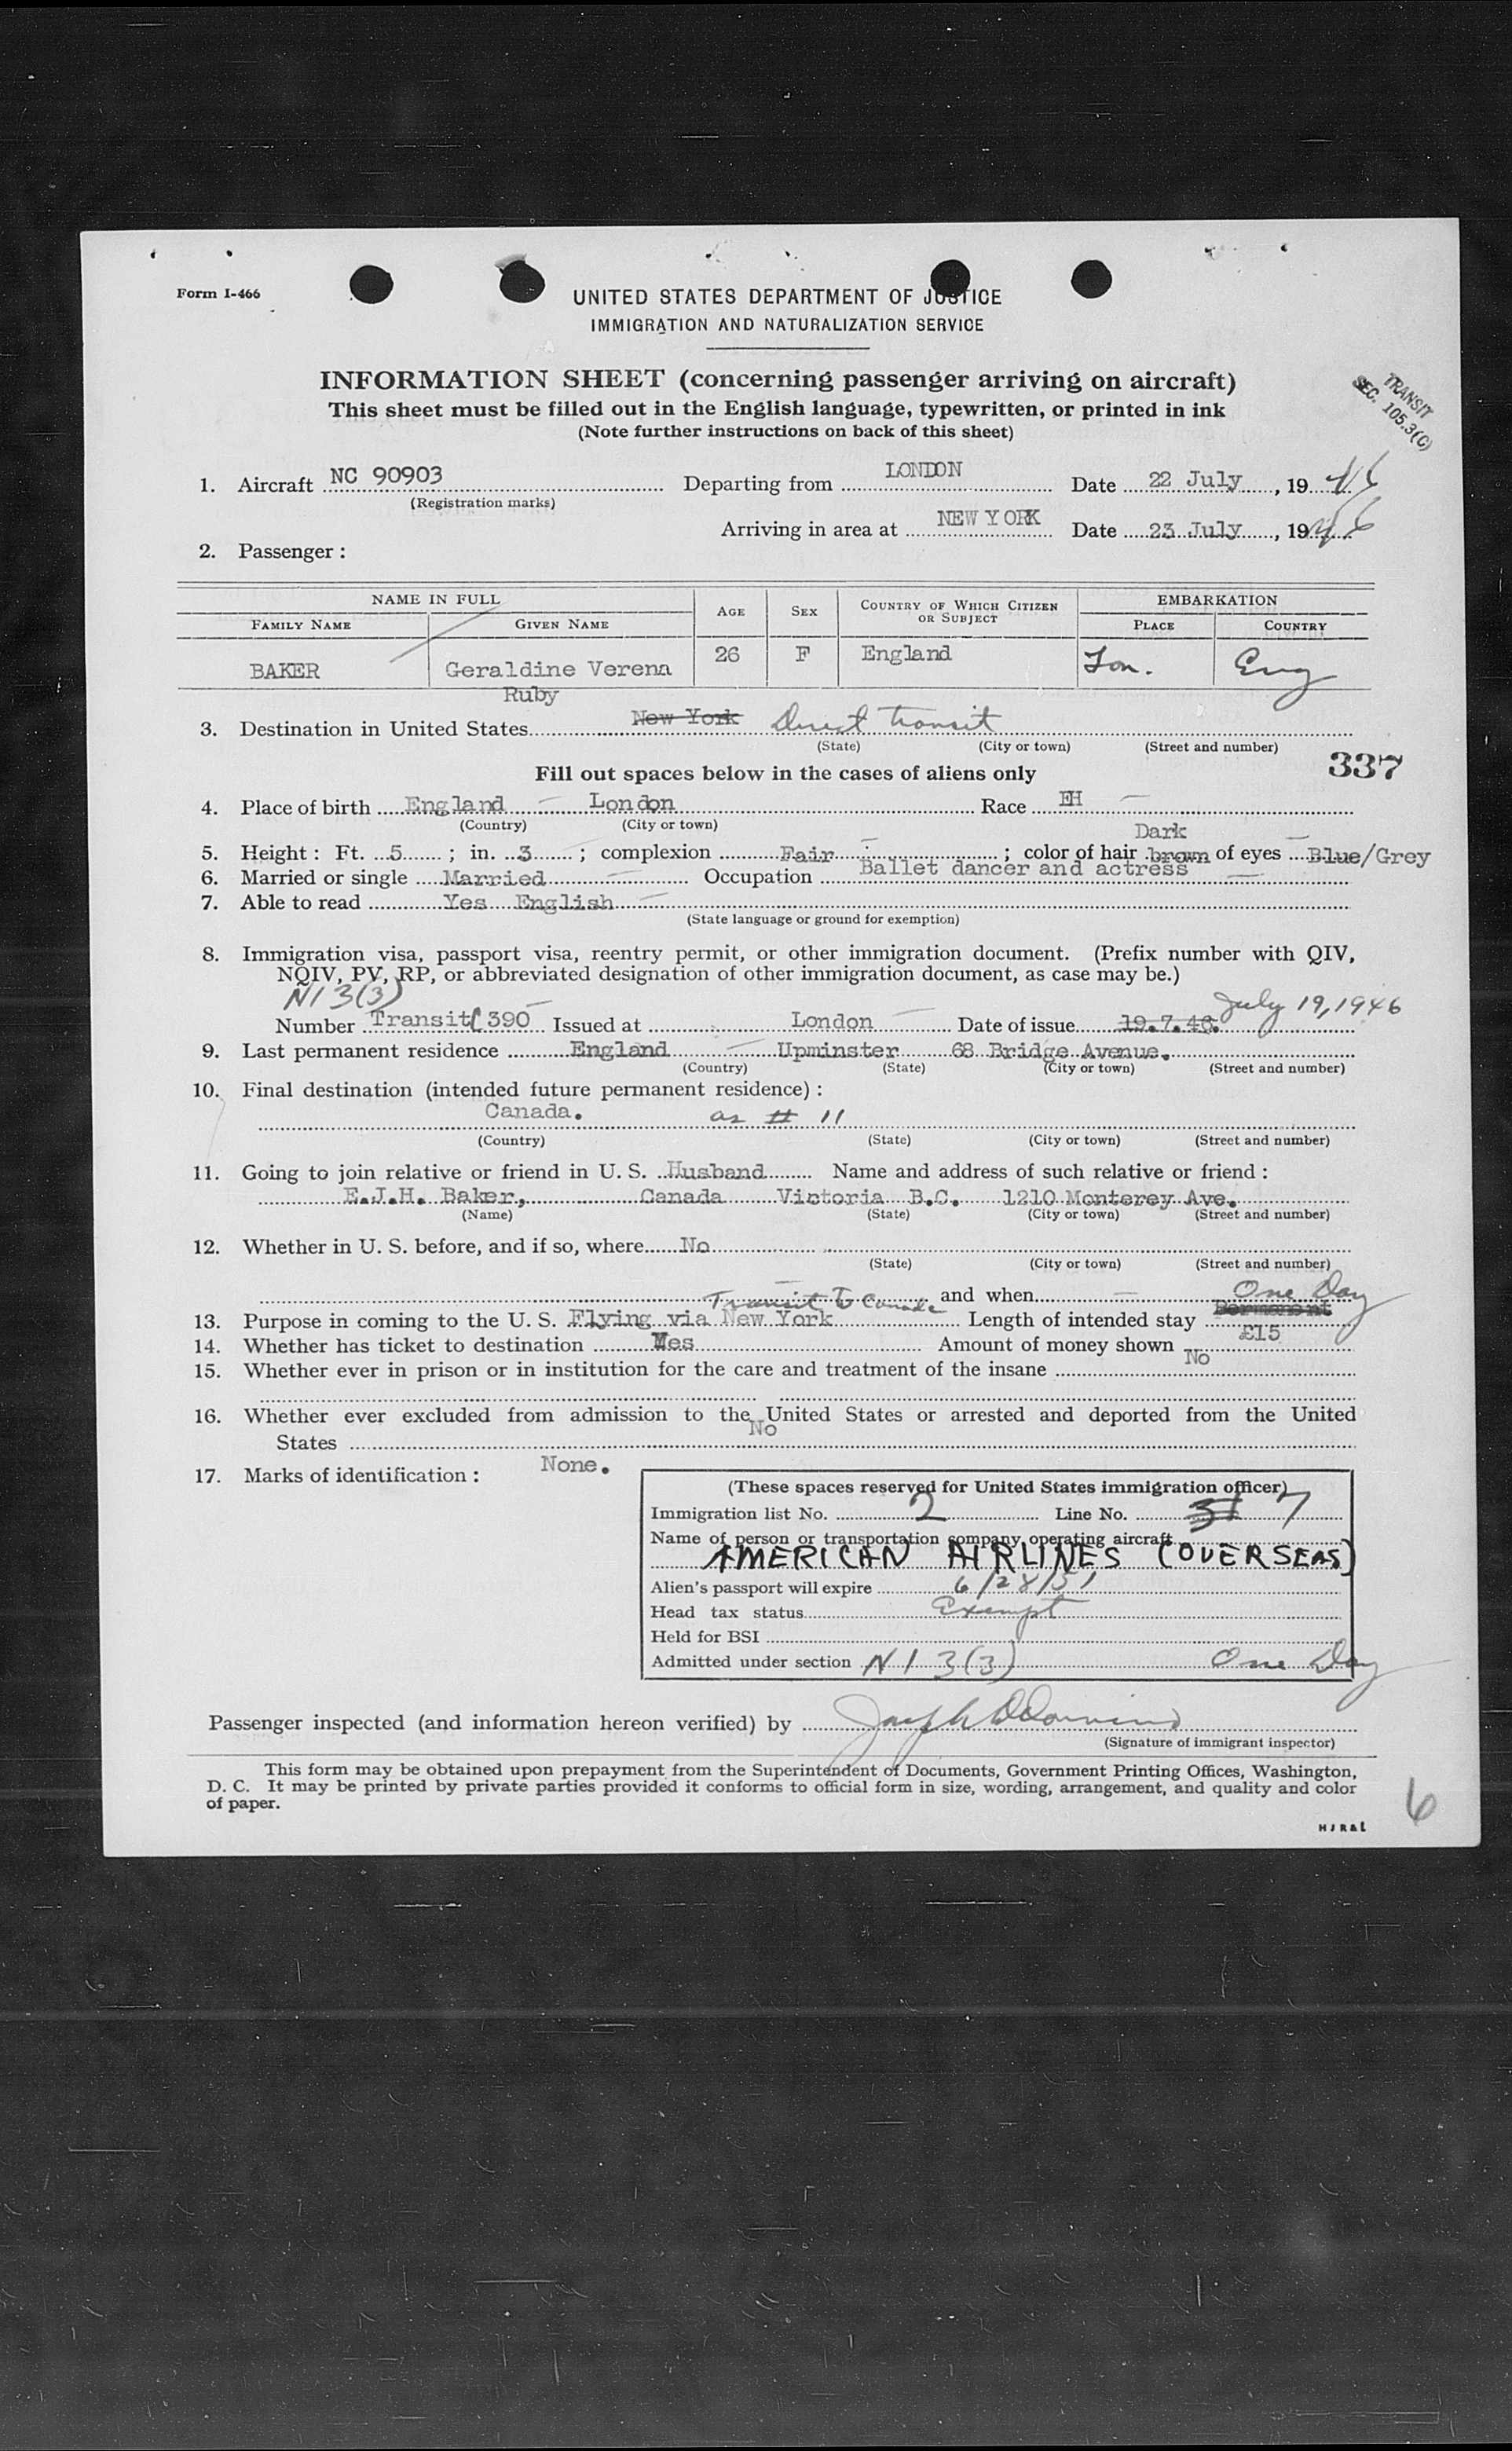 Form I-466
UNITED STATES DEPARTMENT OF JUSTICE
IMMIGRATION AND NATURALIZATION SERVICE
INFORMATION SHEET (concerning passenger arriving on aircraft)
This sheet must be filled out in the English language, typewritten, or printed in ink
(Note further instructions on back of this sheet)
TRANSIT
SEC. 105.3(C)
1. Aircraft NC 90903 Departing from LONDON Date 22 July, 1946
(Registration marks)
Arriving in area at NEW YORK Date 23 July, 1946
2. Passenger :
NAME IN FULL AGE SEX COUNTRY OF WHICH CITIZEN OR SUBJECT EMBARKATION
FAMILY NAME GIVEN NAME PLACE COUNTRY
BAKER Geraldine Verena Ruby 26 F England Lon. Eng
3. Destination in United States New York Direct transit
(State) (City or town) (Street and number)
337
Fill out spaces below in the cases of aliens only
4. Place of birth England London Race EH
(Country) (City or town)
5. Height : Ft. 5 ; in. 3 ; complexion Fair ; color of hair Dark brown of eyes Blue/Grey
6. Married or single Married Occupation Ballet dancer and actress
7. Able to read Yes English
(State language or ground for exemption)
8. Immigration visa, passport visa, reentry permit, or other immigration document. (Prefix number with QIV,
NQIV, PV, RP, or abbreviated designation of other immigration document, as case may be.)
NI 3(3) July 19, 1946
Number Transit 390 Issued at London Date of issue 19.7.46.
9. Last permanent residence England Upminster 68 Bridge Avenue.
(Country) (State) (City or town) (Street and number)
10. Final destination (intended future permanent residence) :
Canada. as # 11
(Country) (State) (City or town) (Street and number)
11. Going to join relative or friend in U. S. Husband Name and address of such relative or friend :
E.J.H. Baker, Canada Victoria B.C. 1210 Monterey Ave.
(Name) (State) (City or town) (Street and number)
12. Whether in U. S. before, and if so, where No
(State) (City or town) (Street and number)
and when
Transit to Canada One Day
13. Purpose in coming to the U. S. Flying via New York Length of intended stay Permanent
14. Whether has ticket to destination Yes Amount of money shown £15
15. Whether ever in prison or in institution for the care and treatment of the insane No
16. Whether ever excluded from admission to the United States or arrested and deported from the United
States No
17. Marks of identification : None.
(These spaces reserved for United States immigration officer)
Immigration list No. 2 Line No. 7
Name of person or transportation company operating aircraft
AMERICAN AIRLINES (OVERSEAS)
Alien's passport will expire 6/28/51
Head tax status Exempt
Held for BSI
Admitted under section NI 3(3) One Day
Passenger inspected (and information hereon verified) by
(Signature of immigrant inspector)
This form may be obtained upon prepayment from the Superintendent of Documents, Government Printing Offices, Washington,
D. C. It may be printed by private parties provided it conforms to official form in size, wording, arrangement, and quality and color
of paper.
6
HJR&L